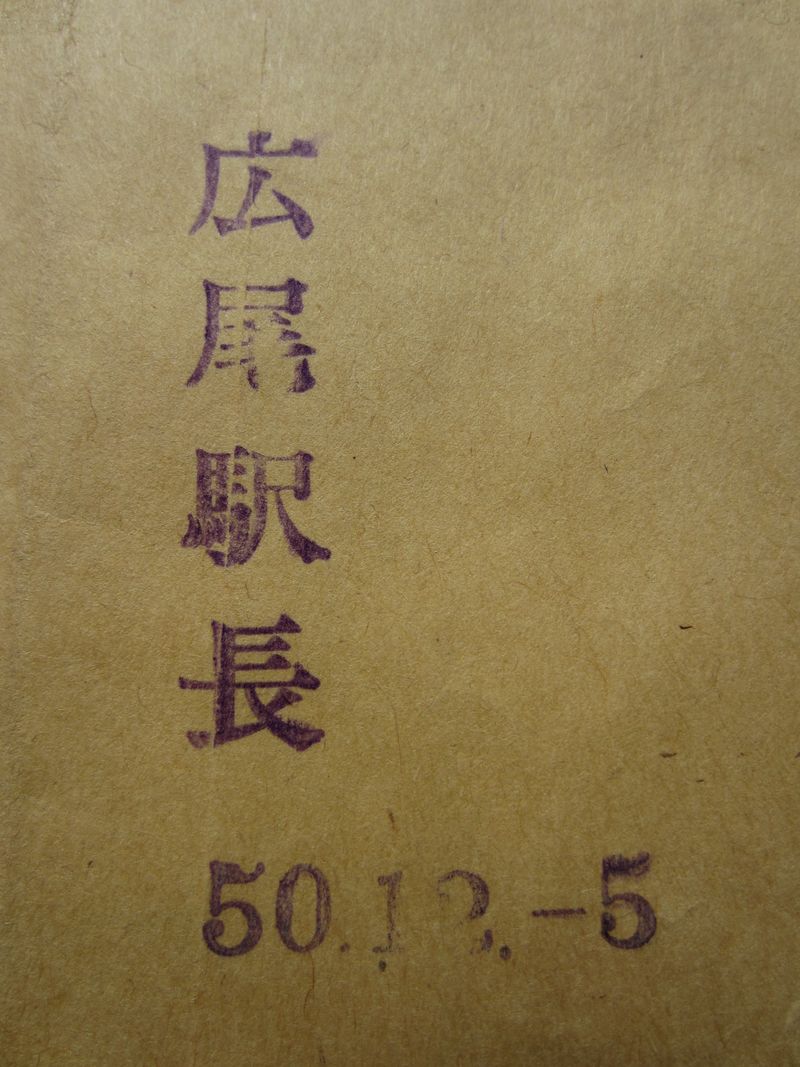 広尾駅長
50.12.-5